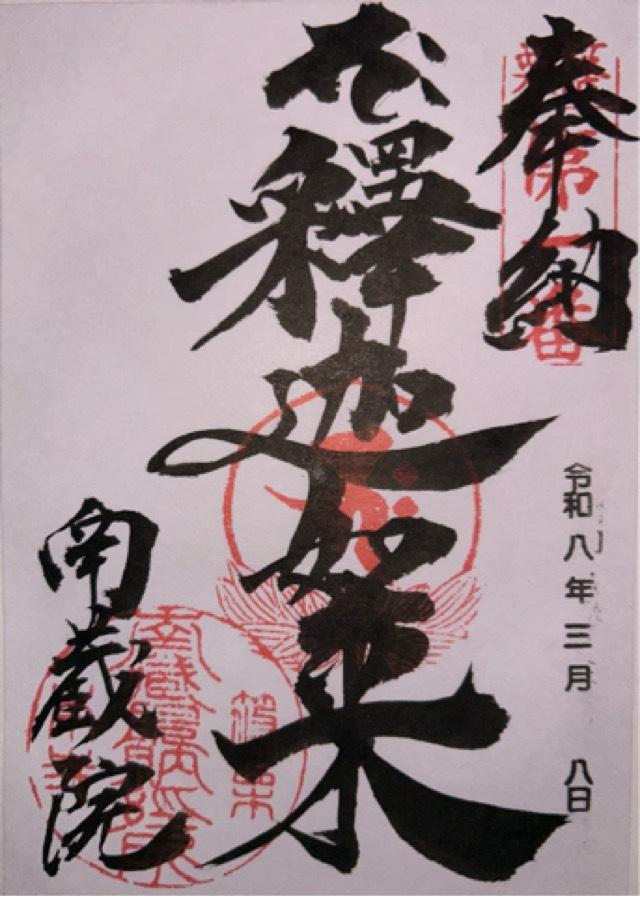 奉納
第一番
釋迦如来
令和八年三月 八日
南蔵院